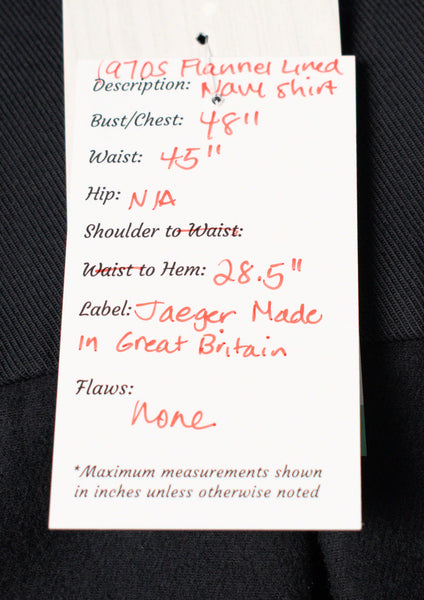 1970s Flannel Lined
Description: Navy Shirt
Bust/Chest: 48"
Waist: 45"
Hip: N/A
Shoulder to Waist:
Waist to Hem: 28.5"
Label: Jaeger Made
in Great Britain
Flaws:
None
*Maximum measurements shown
in inches unless otherwise noted